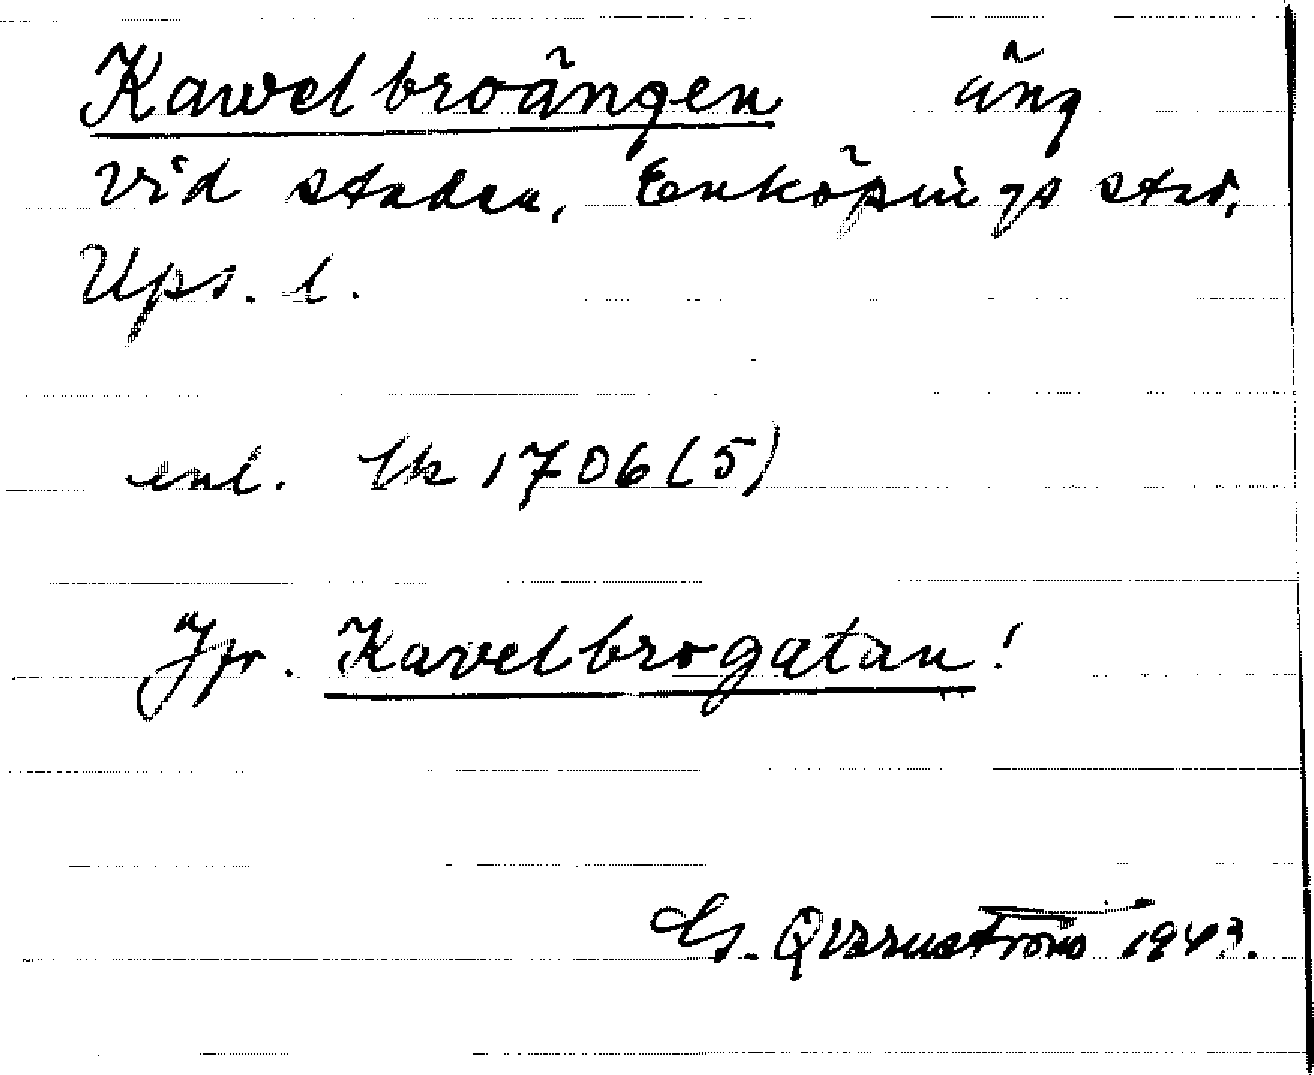 Kawelbroängen äng
vid staden, Enköpings stad,
Ups. l.
enl. lk 1706 (5)
Jfr. Kavelbrogatan!
G. Qvarnström 1943.